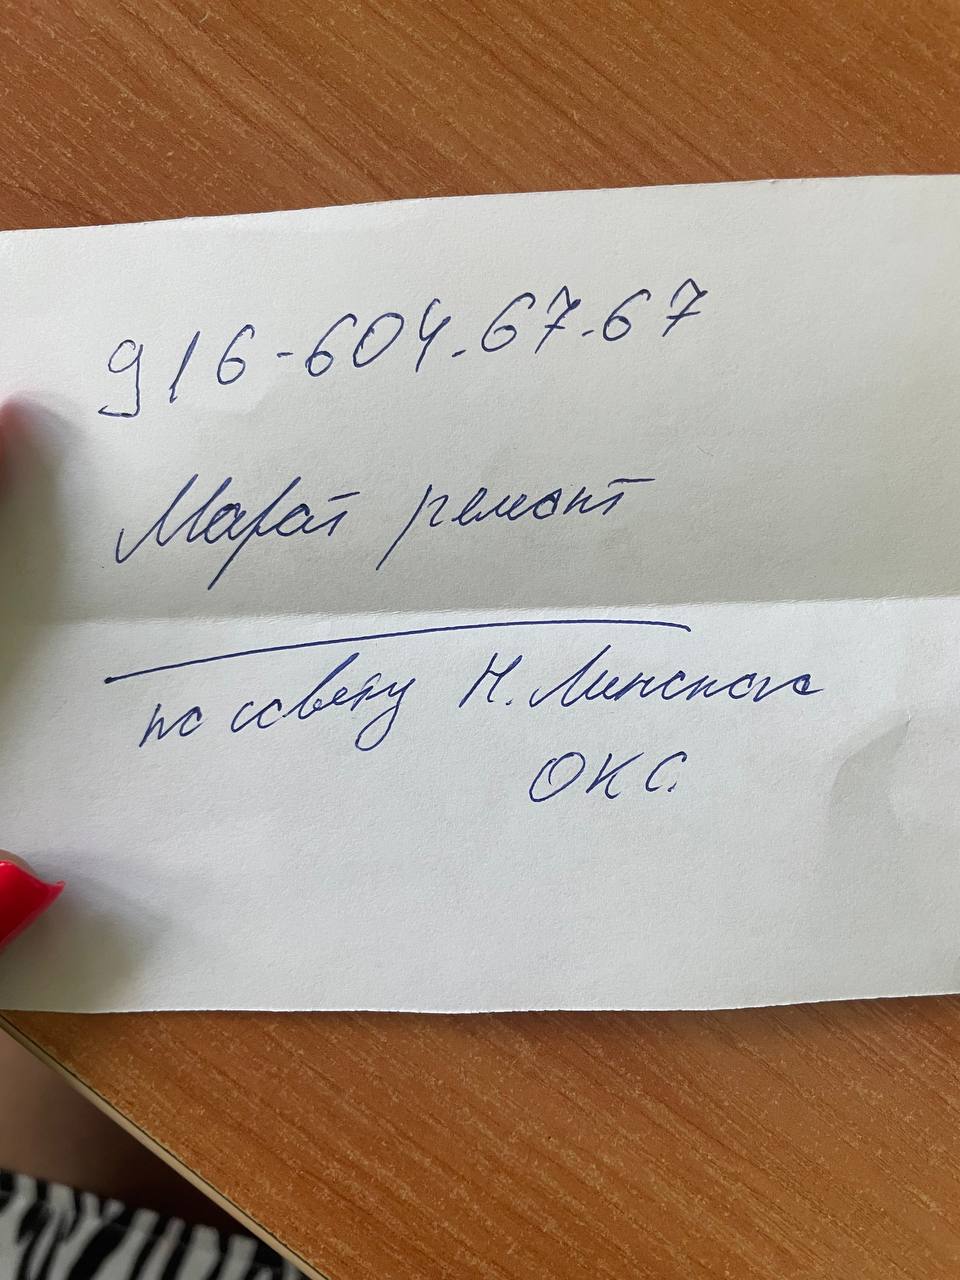 916-604.67-67
Марат ремонт
по совету Н. Линского
ОКС.